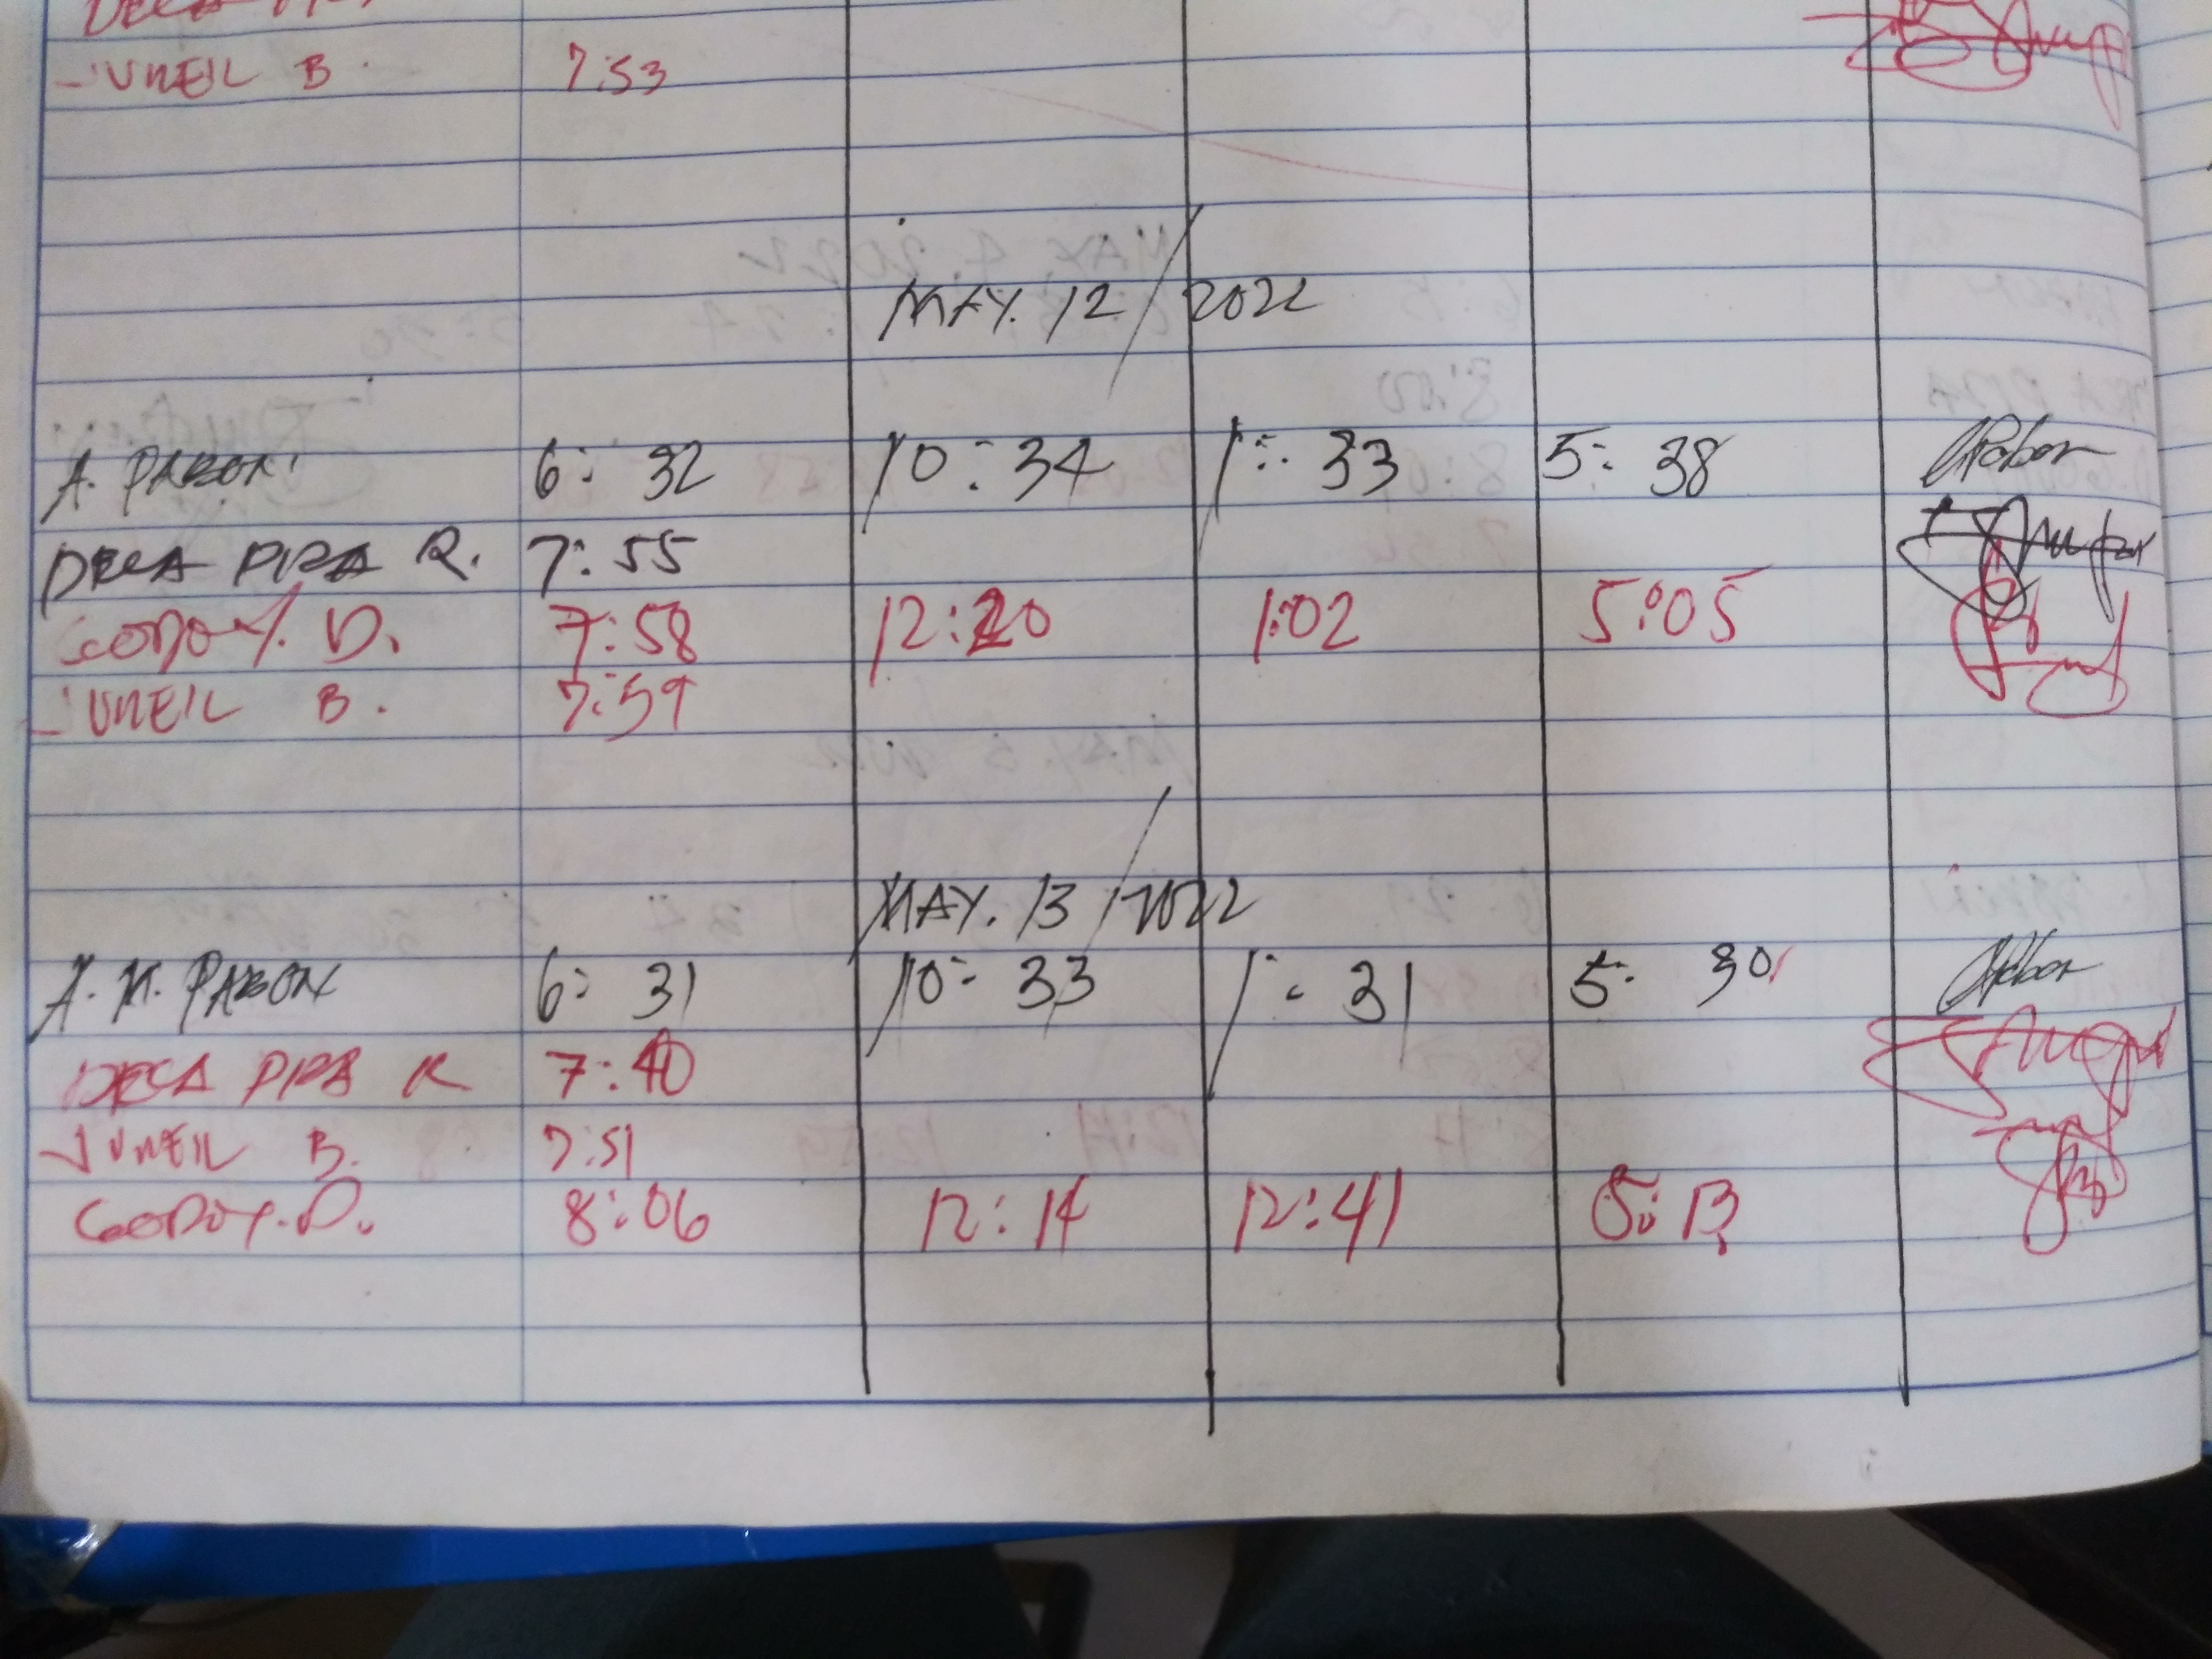 JUNEIL B. 7:53
MAY. 12 / 2022
A. PABON 6: 32 10: 34 1: 33 5: 38
DECA PIZA R. 7:55
GODOY. D. 7:58 12:20 1:02 5:05
JUNEIL B. 7:59
MAY. 13 / 2022
A. M. PABON 6: 31 10: 33 1: 31 5: 30
DECA PIZA R 7:40
JUNEIL B. 7:51
GODOY. D. 8:06 12:14 12:41 5:13